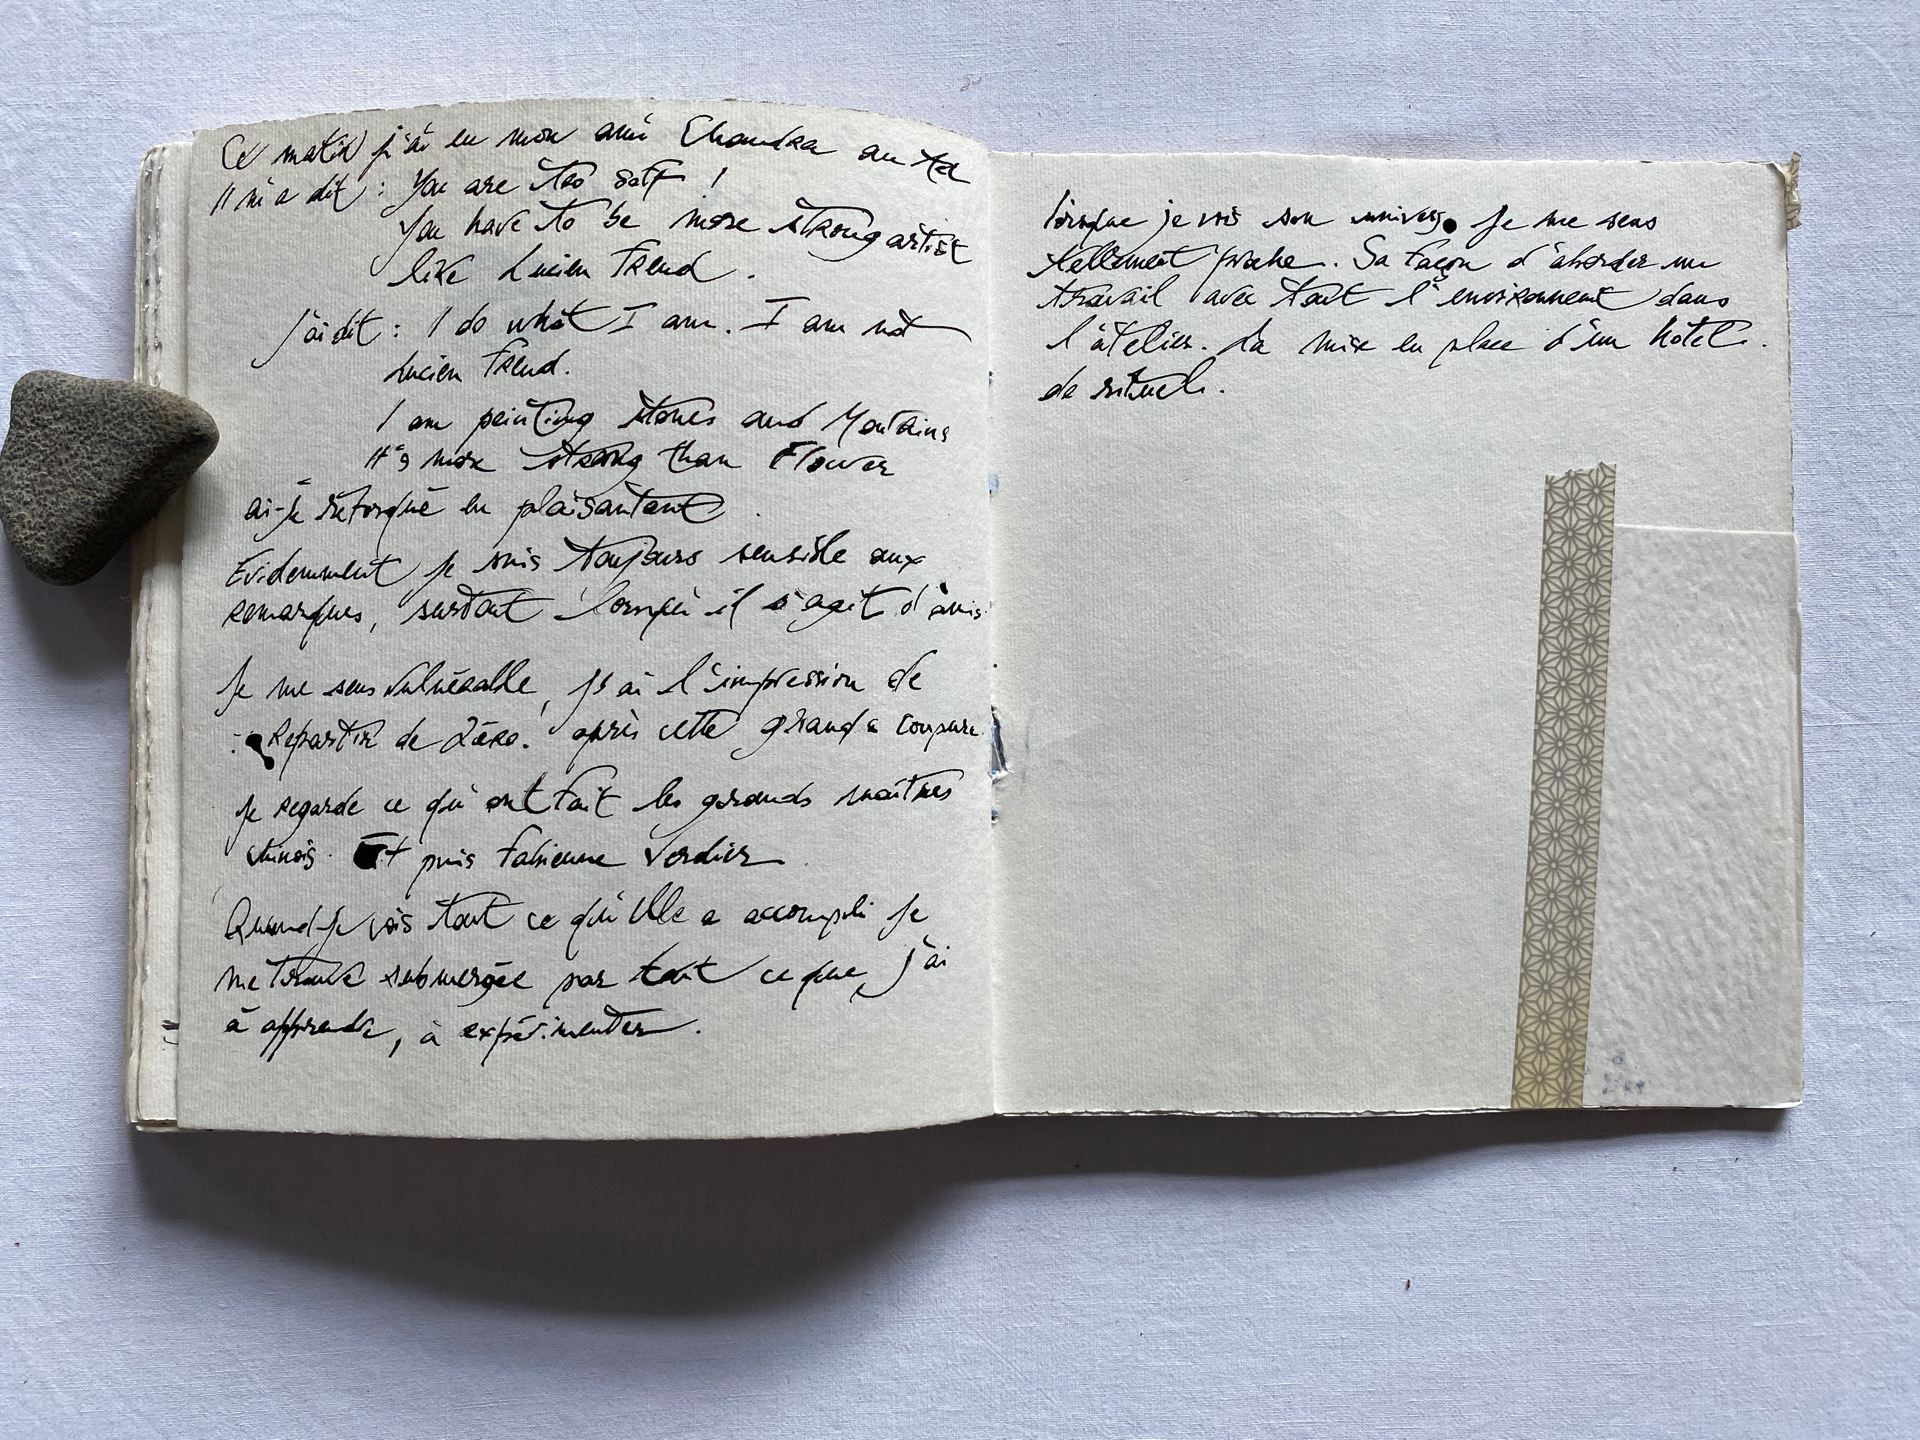 Ce matin j'ai eu mon ami Chandra au tel
Il m'a dit : You are too soft !
You have to be more strong artist
like Lucien Freud .
J'ai dit : I do what I am . I am not
Lucien Freud.
I am peinting stones and Montains
It's more strong than Flower
ai-je rétorqué en plaisantant .
Evidemment je suis toujours sensible aux
remarques, surtout lorsqu'il s'agit d'amis
Je me sens vulnérable, j'ai l'impression de
Repartir de Zéro. après cette grande coupure
Je regarde ce qu'ont fait les grands maîtres
chinois . Et puis Fabienne Verdier
Quand je vois tout ce qu'Elle a accompli je
me trouve submergée par tout ce que j'ai
à apprendre, à expérimenter .
lorsque je vois son univers. Je me sens
tellement proche . Sa façon d'aborder un
travail avec tout l'environnement dans
l'atelier. La mise en place d'un hotel .
de rituel .